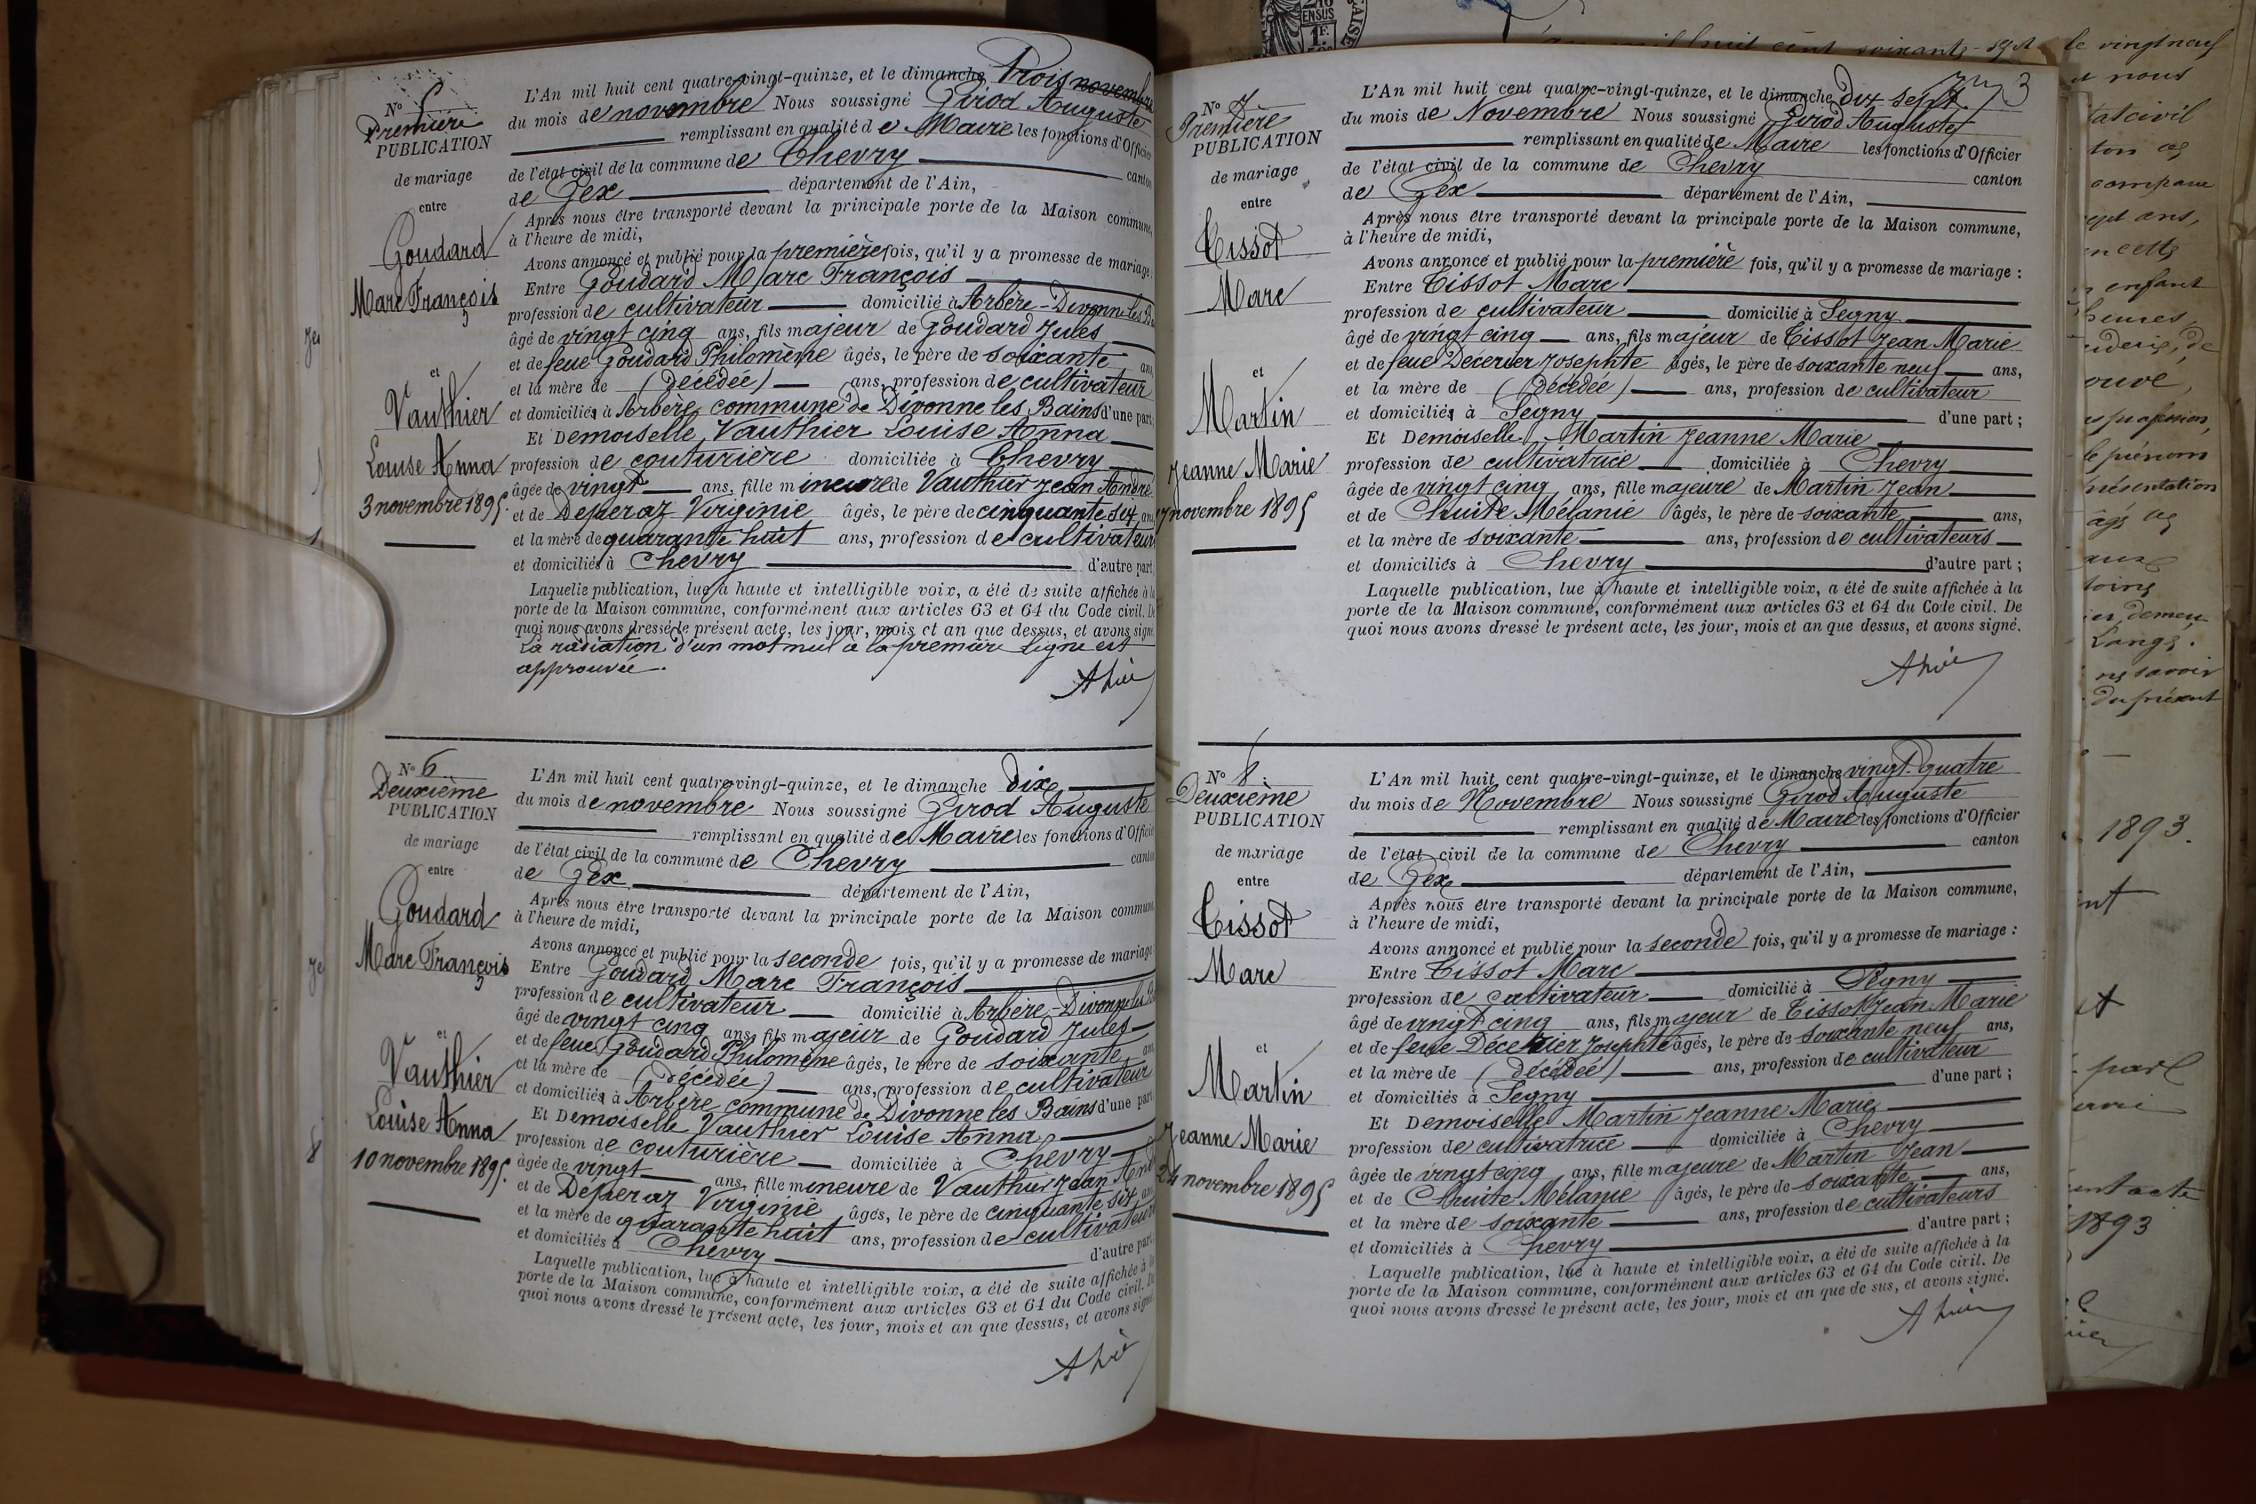 N° 5
Première
PUBLICATION
de mariage
entre
Goudard
Marc François
et
Vauthier
Louise Anna
3 novembre 1895.
L'An mil huit cent quatre-vingt-quinze, et le dimanche trois novembre
du mois de novembre Nous soussigné Girod Auguste
remplissant en qualité de Maire les fonctions d'Officier
de l'état civil de la commune de Chevry canton
de Gex département de l'Ain,
Après nous être transporté devant la principale porte de la Maison commune,
à l'heure de midi,
Avons annoncé et publié pour la première fois, qu'il y a promesse de mariage :
Entre Goudard Marc François
profession de cultivateur domicilié à Arbère-Divonne les B
âgé de vingt cinq ans, fils majeur de Goudard Jules
et de feue Goudard Philomène âgés, le père de soixante ans
et la mère de (décédée) ans, profession de cultivateur
et domiciliés à Arbère commune de Divonne les Bains d'une part;
Et Demoiselle Vauthier Louise Anna
profession de couturière domiciliée à Chevry
âgée de vingt ans, fille mineure de Vauthier Jean André
et de Deperaz Virginie âgés, le père de cinquante six ans
et la mère de quarante huit ans, profession de cultivateurs
et domiciliés à Chevry d'autre part
Laquelle publication, lue à haute et intelligible voix, a été de suite affichée à la
porte de la Maison commune, conformément aux articles 63 et 64 du Code civil. De
quoi nous avons dressé le présent acte, les jour, mois et an que dessus, et avons signé.
La radiation d'un mot nul à la première ligne est
approuvée.
N° 6
Deuxième
PUBLICATION
de mariage
entre
Goudard
Marc François
et
Vauthier
Louise Anna
10 novembre 1895.
L'An mil huit cent quatre-vingt-quinze, et le dimanche dix
du mois de novembre Nous soussigné Girod Auguste
remplissant en qualité de Maire les fonctions d'Officier
de l'état civil de la commune de Chevry canton
de Gex département de l'Ain,
Après nous être transporté devant la principale porte de la Maison commune,
à l'heure de midi,
Avons annoncé et publié pour la seconde fois, qu'il y a promesse de mariage
Entre Goudard Marc François
profession de cultivateur domicilié à Arbère-Divonne les B
âgé de vingt cinq ans, fils majeur de Goudard Jules
et de feue Goudard Philomène âgés, le père de soixante ans
et la mère de (décédée) ans, profession de cultivateur
et domiciliés à Arbère commune de Divonne les Bains d'une part
Et Demoiselle Vauthier Louise Anna
profession de couturière domiciliée à Chevry
âgée de vingt ans, fille mineure de Vauthier Jean And
et de Deperaz Virginie âgés, le père de cinquante six ans
et la mère de quarante huit ans, profession de cultivateurs
et domiciliés à Chevry d'autre part
Laquelle publication, lue à haute et intelligible voix, a été de suite affichée à la
porte de la Maison commune, conformément aux articles 63 et 64 du Code civil. De
quoi nous avons dressé le présent acte, les jour, mois et an que dessus, et avons signé
3
N° 7
Première
PUBLICATION
de mariage
entre
Tissot
Marc
et
Martin
Jeanne Marie
17 novembre 1895
L'An mil huit cent quatre-vingt-quinze, et le dimanche dix sept
du mois de Novembre Nous soussigné Girod Auguste
remplissant en qualité de Maire les fonctions d'Officier
de l'état civil de la commune de Chevry canton
de Gex département de l'Ain,
Après nous être transporté devant la principale porte de la Maison commune,
à l'heure de midi,
Avons annoncé et publié pour la première fois, qu'il y a promesse de mariage :
Entre Tissot Marc
profession de cultivateur domicilié à Segny
âgé de vingt cinq ans, fils majeur de Tissot Jean Marie
et de feue Décerier Josephte âgés, le père de soixante neuf ans,
et la mère de (décédée) ans, profession de cultivateur
et domiciliés à Segny d'une part ;
Et Demoiselle Martin Jeanne Marie
profession de cultivatrice domiciliée à Chevry
âgée de vingt cinq ans, fille majeure de Martin Jean
et de Chuite Mélanie âgés, le père de soixante ans,
et la mère de soixante ans, profession de cultivateurs
et domiciliés à Chevry d'autre part ;
Laquelle publication, lue à haute et intelligible voix, a été de suite affichée à la
porte de la Maison commune, conformément aux articles 63 et 64 du Code civil. De
quoi nous avons dressé le présent acte, les jour, mois et an que dessus, et avons signé.
N° 8.
Deuxième
PUBLICATION
de mariage
entre
Tissot
Marc
et
Martin
Jeanne Marie
24 novembre 1895
L'An mil huit cent quatre-vingt-quinze, et le dimanche vingt-quatre
du mois de Novembre Nous soussigné Girod Auguste
remplissant en qualité de Maire les fonctions d'Officier
de l'état civil de la commune de Chevry canton
de Gex département de l'Ain,
Après nous être transporté devant la principale porte de la Maison commune,
à l'heure de midi,
Avons annoncé et publié pour la seconde fois, qu'il y a promesse de mariage :
Entre Tissot Marc
profession de cultivateur domicilié à Segny
âgé de vingt cinq ans, fils majeur de Tissot Jean Marie
et de feue Décerier Josephte âgés, le père de soixante neuf ans,
et la mère de (décédée) ans, profession de cultivateur
et domiciliés à Segny d'une part ;
Et Demoiselle Martin Jeanne Marie
profession de cultivatrice domiciliée à Chevry
âgée de vingt cinq ans, fille majeure de Martin Jean
et de Chuite Mélanie âgés, le père de soixante ans,
et la mère de soixante ans, profession de cultivateurs
et domiciliés à Chevry d'autre part ;
Laquelle publication, lue à haute et intelligible voix, a été de suite affichée à la
porte de la Maison commune, conformément aux articles 63 et 64 du Code civil. De
quoi nous avons dressé le présent acte, les jour, mois et an que de sus, et avons signé.
le vingt neuf
nous
compare
ans,
enfant
heures,
profession,
le prénom
présentation
Lange.
savoir
du présent
1893.
1893